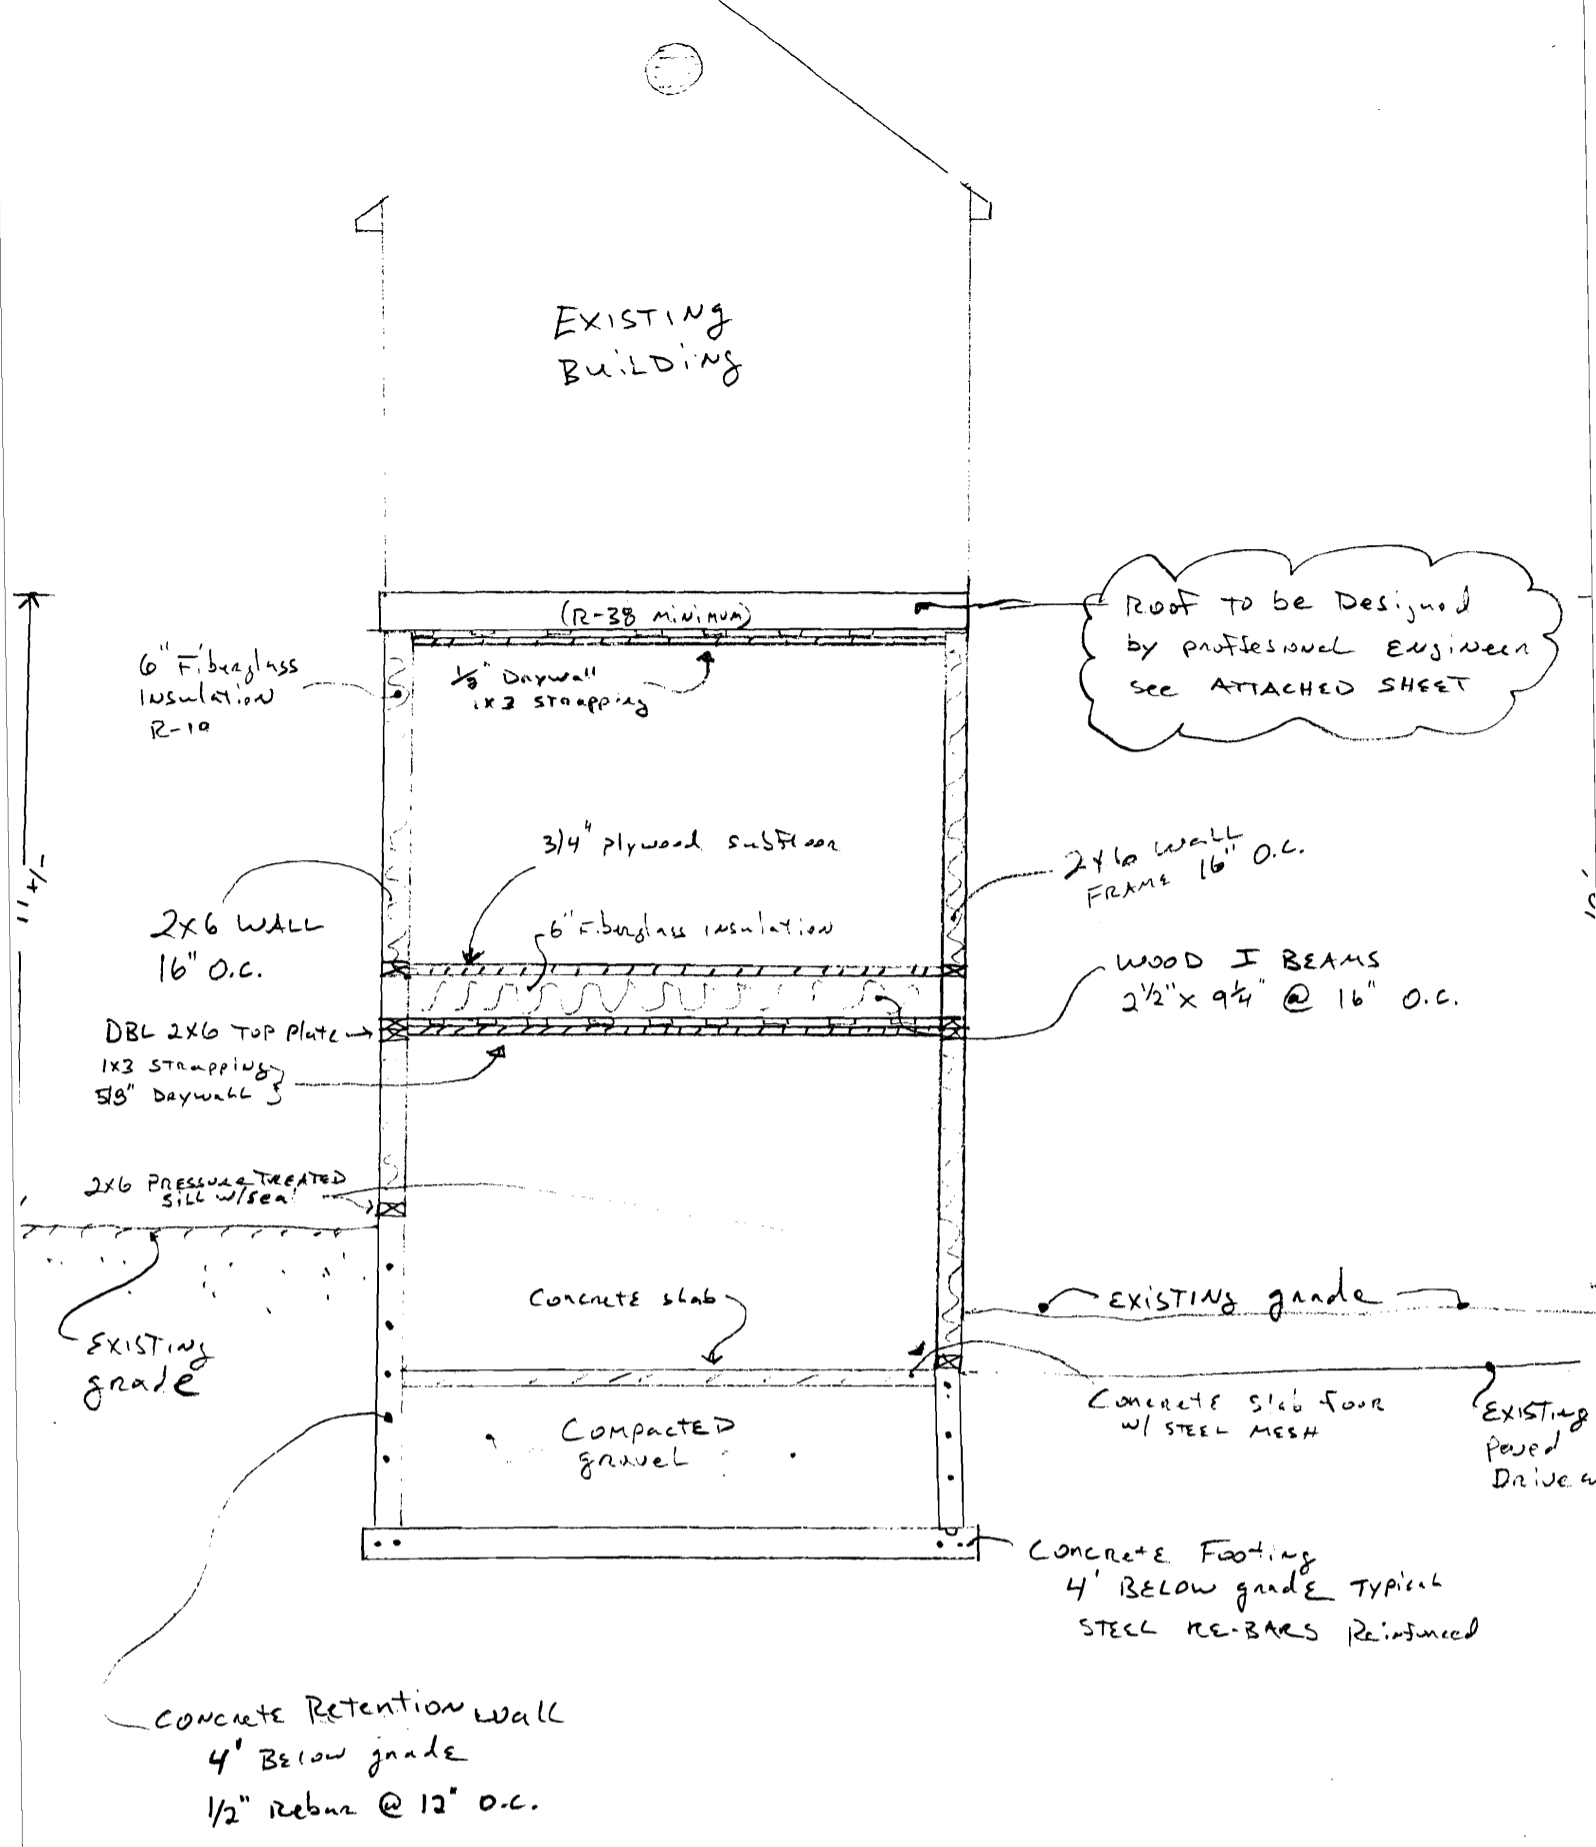 EXISTING
BUILDING
(R-38 MINIMUM)
Roof to be Designed
by proffesional Engineer
see ATTACHED SHEET
6" Fiberglass
Insulation
R-19
1/2" Drywall
1x3 strapping
11' +/-
3/4" plywood subfloor
2x6 WALL
FRAME 16" O.C.
6" Fiberglass insulation
2x6 WALL
16" O.C.
WOOD I BEAMS
2 1/2" x 9 1/4" @ 16" O.C.
DBL 2x6 TOP Plate
1x3 STRAPPING
5/8" DRYWALL
2x6 PRESSURE TREATED
SILL w/seal
EXISTING
grade
Concrete slab
EXISTING grade
Concrete Slab Foor
w/ STEEL MESH
EXISTING
Paved
Drivew
COMPACTED
gravel
CONCRETE Footing
4' BELOW gradE Typical
STEEL RE-BARS Reinforced
CONCRETE Retention Wall
4' Below grade
1/2" Rebar @ 12" O.C.